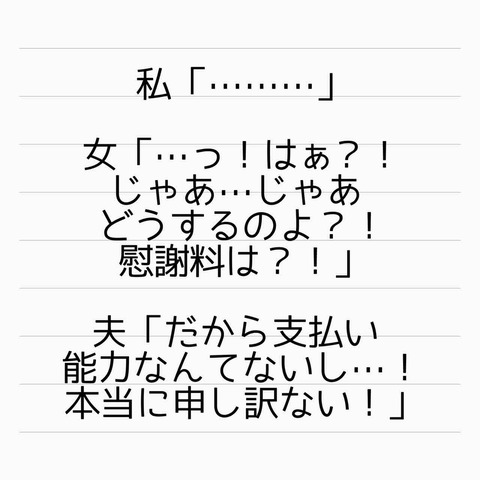 私「………」
女「…っ！はぁ？！
じゃあ…じゃあ
どうするのよ？！
慰謝料は？！」
夫「だから支払い
能力なんてないし…！
本当に申し訳ない！」